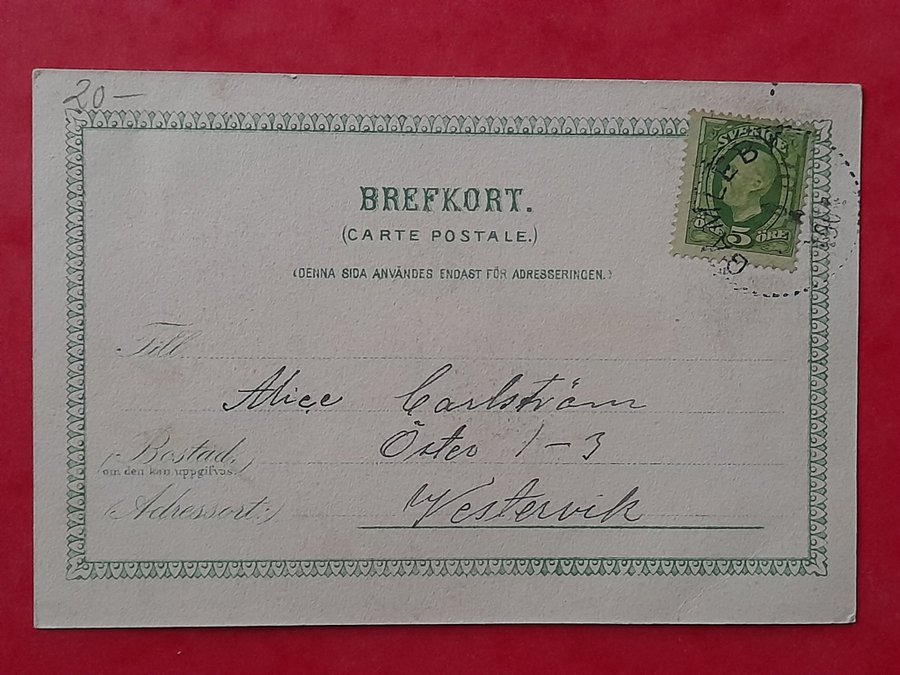 20–
BREFKORT.
(CARTE POSTALE.)
(DENNA SIDA ANVÄNDES ENDAST FÖR ADRESSERINGEN.)
SVERIGE
GAMLEBY
5 ÖRE
Till
Alice Carlström
(Bostad,
Öster 1–3
om den kan uppgifvas.)
(Adressort:)
Vestervik